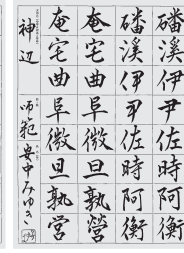 磻溪伊尹佐時阿衡
磻溪伊尹佐時阿衡
奄宅曲阜微旦孰營
奄宅曲阜微旦孰営
神辺
師範 安中みゆき